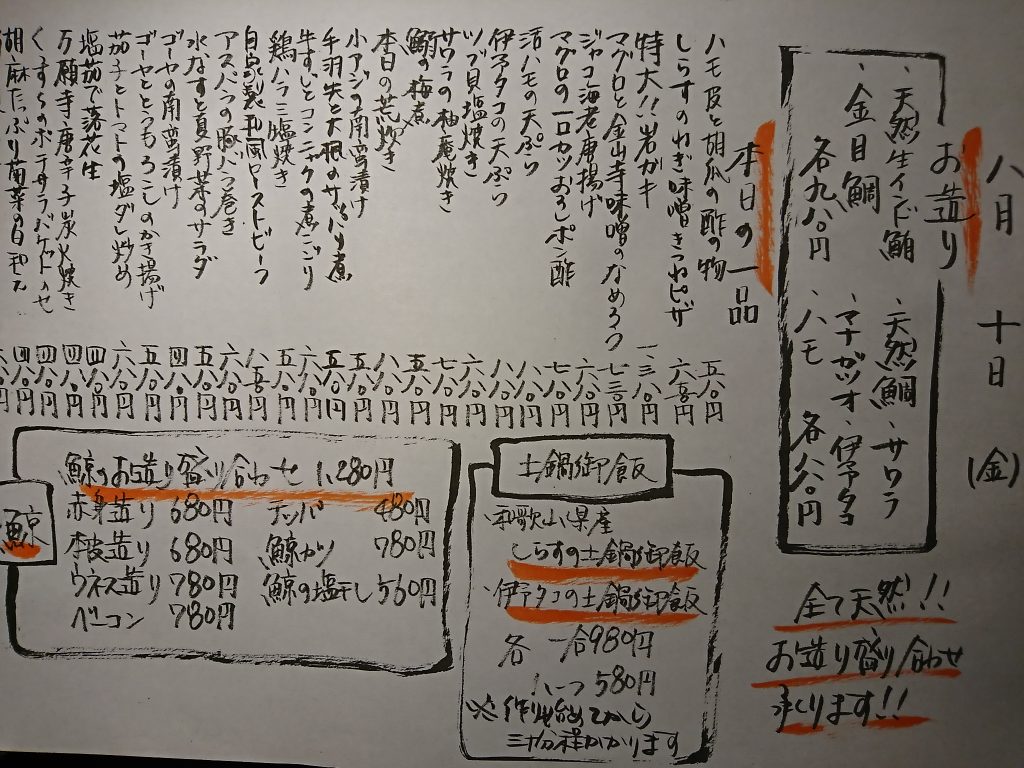 八月 十日 (金)
お造り
、天然生インド鮪
、金目鯛
各九八〇円
、天然鯛、サワラ
、マナガツオ、伊予タコ
、ハモ 各八八〇円
全て天然!!
お造り盛り合わせ
承ります!!
本日の一品
ハモ皮と胡瓜の酢の物 五八〇円
しらすのねぎ味噌きつねピザ 六五〇円
特大!!岩ガキ 一、三八〇円
マグロと金山寺味噌のなめろう 七三〇円
ジャコ海老唐揚げ 六八〇円
マグロの一口カツおろしポン酢 七八〇円
活ハモの天ぷら 八八〇円
伊予タコの天ぷら 八八〇円
ツブ貝塩焼き 六八〇円
サワラの柚庵焼き 七八〇円
鰯の梅煮 五八〇円
本日の荒炊き 八八〇円
小アジの南蛮漬け 五八〇円
手羽先と大根のサッパリ煮 五八〇円
牛すじとコンニャクの煮こごり 六八〇円
鶏ハラミ塩焼き 五八〇円
自家製和風ローストビーフ 八五〇円
アスパラの豚バラ巻き 六八〇円
水なすと夏野菜のサラダ 五八〇円
ゴーヤの南蛮漬け 四八〇円
ゴーヤととうもろこしのかき揚げ 五八〇円
茄子とトマトの塩ダレ炒め 六八〇円
塩茹で落花生 四八〇円
万願寺唐辛子炭火焼き 四八〇円
ポテサラバケットのせ 四八〇円
胡麻たっぷり菊菜の白和え 四八〇円
土鍋御飯
、和歌山県産
しらすの土鍋御飯
、伊予タコの土鍋御飯
各 一合980円
ハーフ580円
※作り始めてから
三十分程かかります
鯨
鯨のお造り盛り合わせ 1,280円
赤身造り 680円
本皮造り 680円
ウネス造り 780円
ベーコン 780円
テッパ 480円
鯨カツ 780円
鯨の塩干し 560円